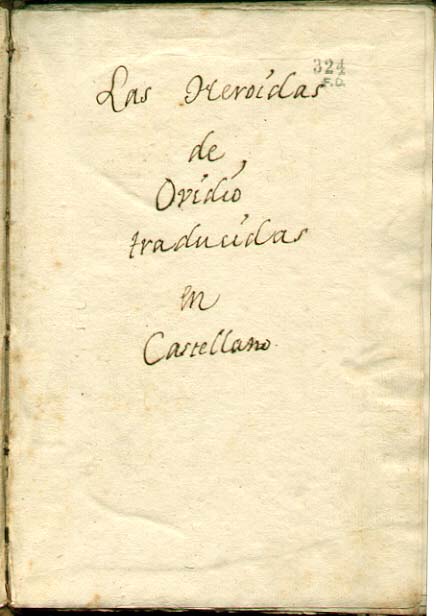 324
F.D.
Las Heroidas
de
Ovidio
traducidas
en
Castellano